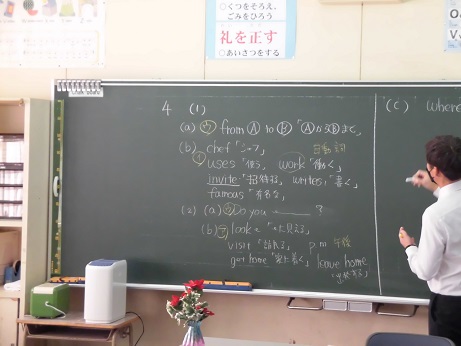 ○くつをそろえ、
ごみをひろう
礼を正す
○あいさつをする
4 (1)
(a) ウ from Ⓐ to Ⓑ 「ⒶからⒷまで」
(b) chef 「シェフ」 自動詞
イ uses 「使う」 work 「働く」
invite 「招待する」 writes 「書く」
famous 「有名な」
(2) (a) Do you ?
(b) look 「に見える」
visit 「訪れる」 p.m 午後
get home 「家に着く」 leave home
(c) Where